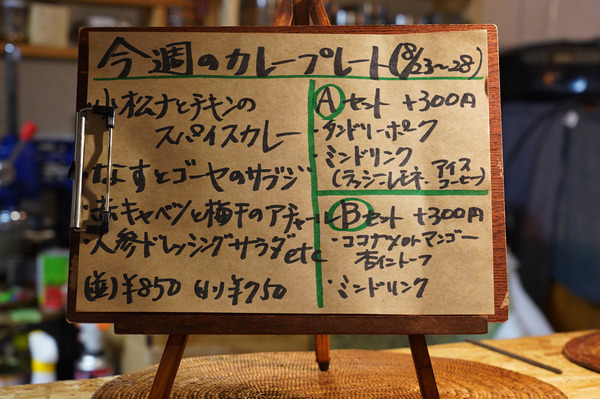 今週のカレープレート(8/23〜28)
小松ナとチキンの
スパイスカレー
・なすとゴーヤのサブジ
・赤キャベツと梅干のアチャール
・人参ドレッシングサラダetc
(並)¥850 (小)¥750
Aセット +300円
・タンドリーポーク
・ミンドリンク
(ラッシー レモネ アイスコーヒー)
Bセット +300円
・ココナツメルトマンゴー
杏イントーフ
・ミンドリンク